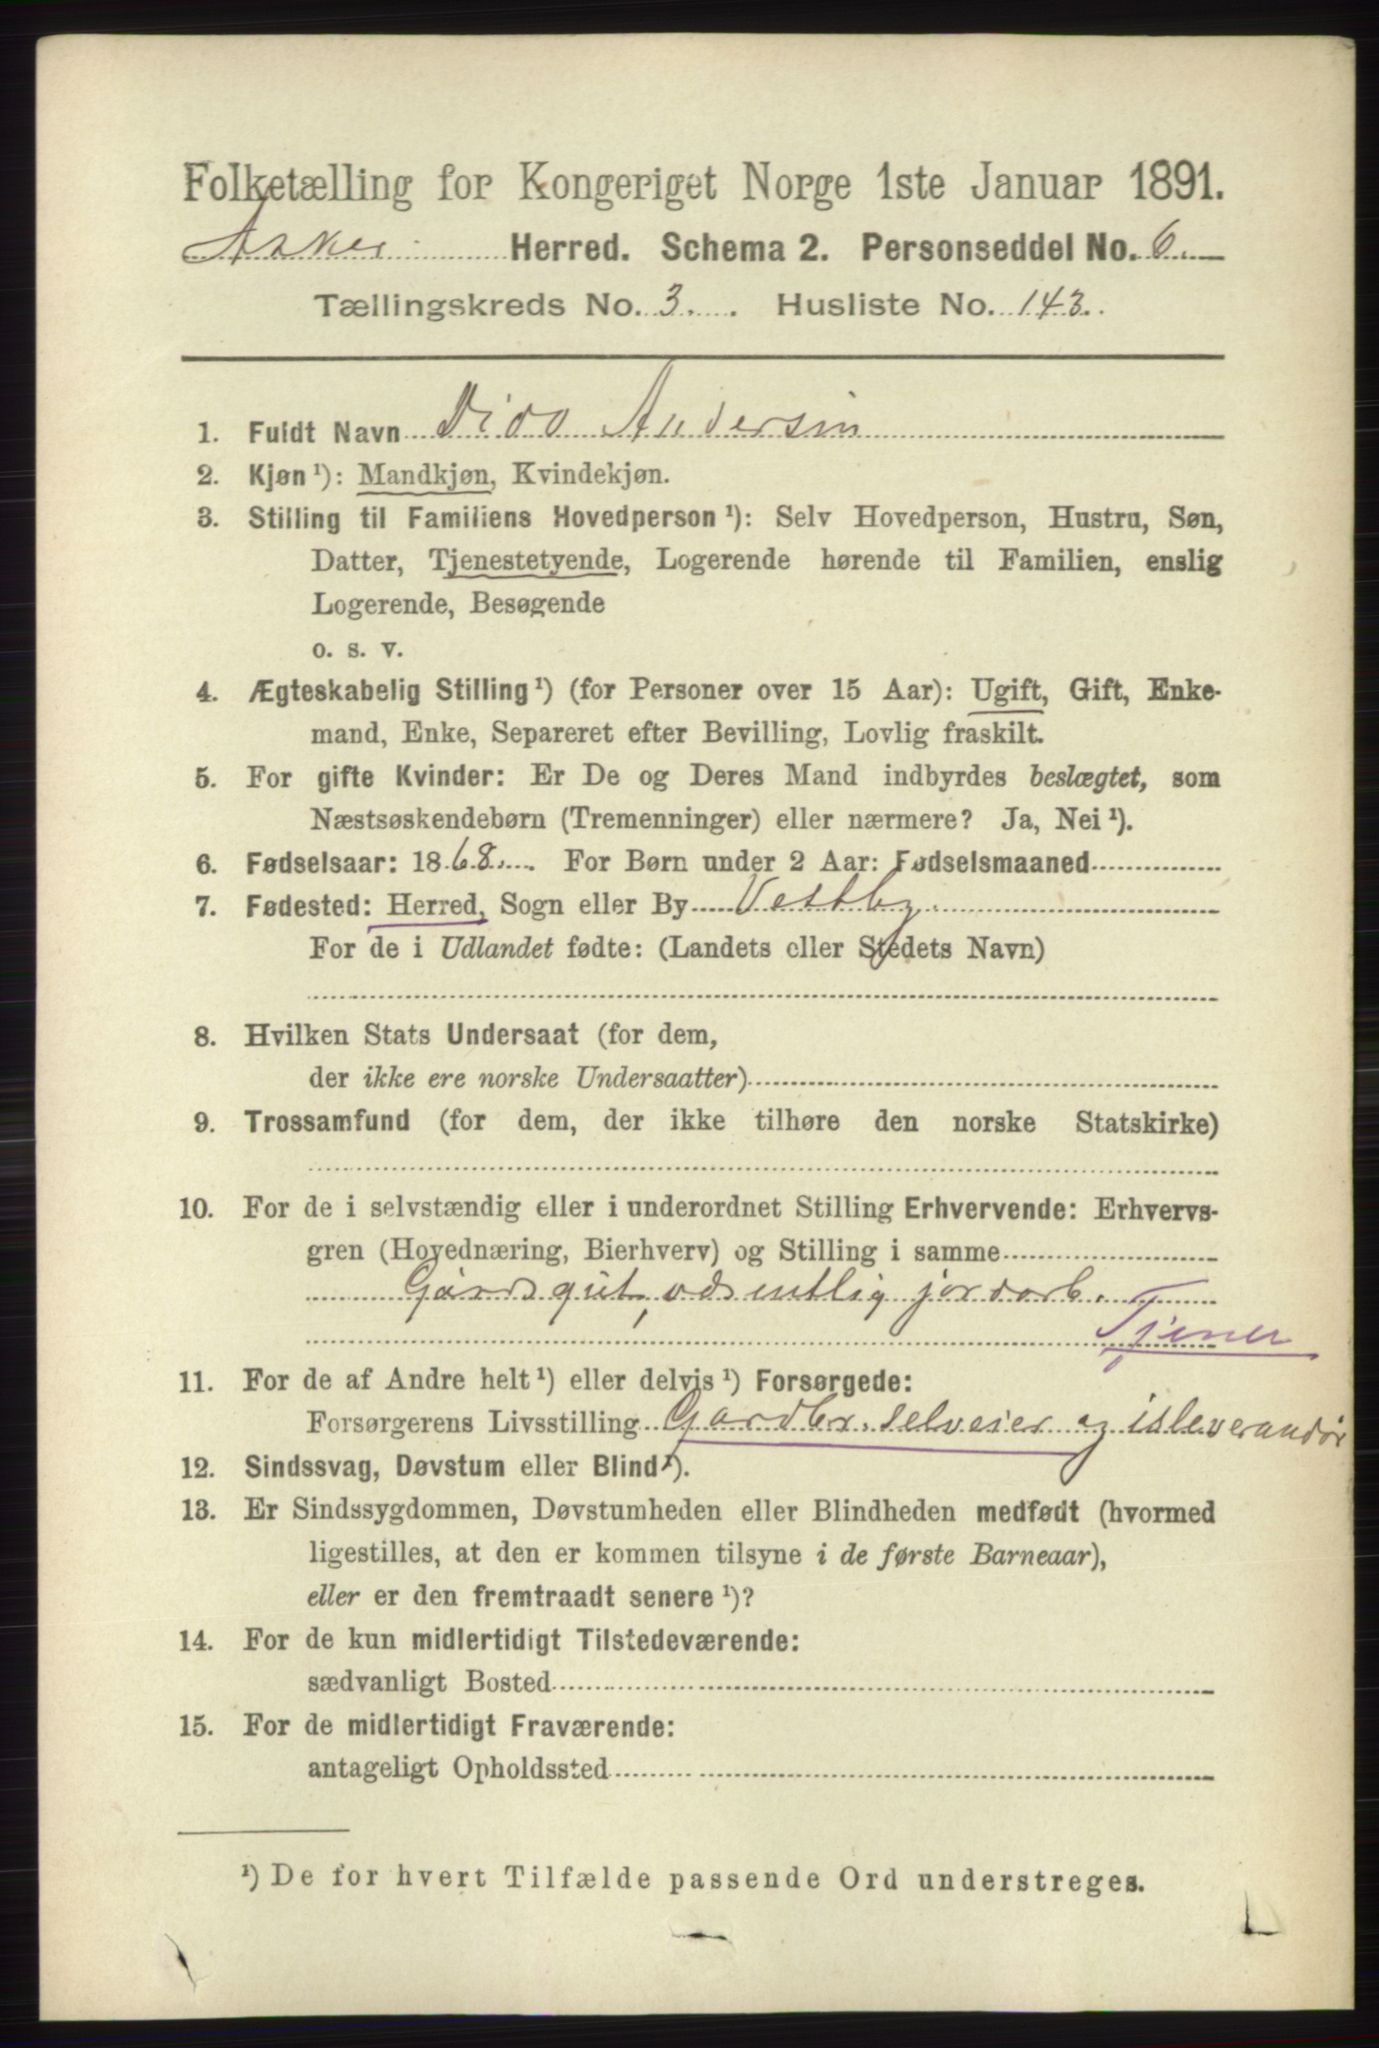 Folketælling for Kongeriget Norge 1ste Januar 1891.
Asker Herred. Schema 2. Personseddel No. 6.
Tællingskreds No. 3. Husliste No. 143.
1. Fuldt Navn Andersen
2. Kjøn ¹): Mandkjøn, Kvindekjøn.
3. Stilling til Familiens Hovedperson ¹): Selv Hovedperson, Hustru, Søn,
Datter, Tjenestetyende, Logerende hørende til Familien, enslig
Logerende, Besøgende
o. s. v.
4. Ægteskabelig Stilling ¹) (for Personer over 15 Aar): Ugift, Gift, Enke-
mand, Enke, Separeret efter Bevilling, Lovlig fraskilt.
5. For gifte Kvinder: Er De og Deres Mand indbyrdes beslægtet, som
Næstsøskendebørn (Tremenninger) eller nærmere? Ja, Nei ¹).
6. Fødselsaar: 1868. For Børn under 2 Aar: Fødselsmaaned
7. Fødested: Herred, Sogn eller By Vestby.
For de i Udlandet fødte: (Landets eller Stedets Navn)
8. Hvilken Stats Undersaat (for dem,
der ikke ere norske Undersaatter)
9. Trossamfund (for dem, der ikke tilhøre den norske Statskirke)
10. For de i selvstændig eller i underordnet Stilling Erhvervende: Erhvervs-
gren (Hovednæring, Bierhverv) og Stilling i samme
Gårdsgut, vdsentlig jordarb.
Tjener
11. For de af Andre helt ¹) eller delvis ¹) Forsørgede:
Forsørgerens Livsstilling Gardbr. selveier og isleverandør
12. Sindssvag, Døvstum eller Blind ¹).
13. Er Sindssygdommen, Døvstumheden eller Blindheden medfødt (hvormed
ligestilles, at den er kommen tilsyne i de første Barneaar),
eller er den fremtraadt senere ¹)?
14. For de kun midlertidigt Tilstedeværende:
sædvanligt Bosted
15. For de midlertidigt Fraværende:
antageligt Opholdssted
¹) De for hvert Tilfælde passende Ord understreges.